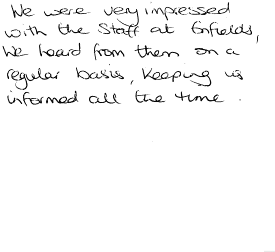 We were very impressed
with the Staff at Enfields,
We heard from them on a
regular basis, keeping us
informed all the time.